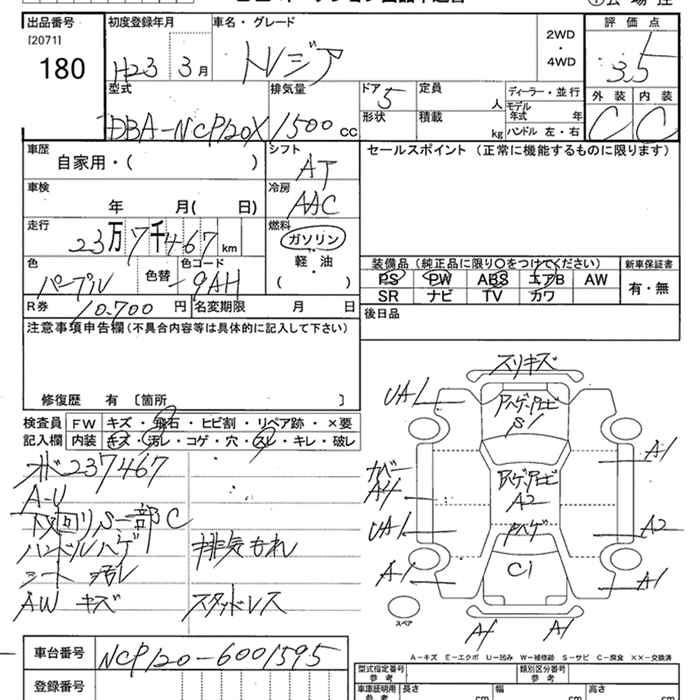 出品番号
[2071]
180
初度登録年月
H23 3月
車名・グレード
トレジア
2WD
・
4WD
評価点
3.5
外装 内装
C C
型式
DBA-NCP120X
排気量
1500 cc
ドア 5
形状
定員 人
積載 kg
ディーラー・並行
モデル年式 年
ハンドル 左・右
車歴
自家用・( )
シフト
AT
セールスポイント(正常に機能するものに限ります)
車検
年 月( 日)
冷房
AAC
走行
23万7千467 km
燃料
ガソリン
軽・油
( )
色
パープル
色替
色コード
9AH
装備品(純正品に限り○をつけてください)
PS PW ABS エアB AW
SR ナビ TV カワ
新車保証書
有・無
R券 10.700 円
名変期限 月 日
後日品
注意事項申告欄(不具合内容等は具体的に記入して下さい)
修復歴 有 [箇所 ]
検査員記入欄
FW キズ・飛石・ヒビ割・リペア跡・×要
内装 キズ・汚レ・コゲ・穴・スレ・キレ・破レ
237467
A-U
下回りS一部C
ハンドルハゲ
排気もれ
シート 汚レ
AW キズ
スタッドレス
スリキズ
UA1
ハゲ.トビ
S1
A1
カバー
A4
ハゲ.トビ
A2
UA1
ハゲ
A2
A1
C1
A1
スペア
A4
A1
車台番号
NCP120-6001595
登録番号
A-キズ E-エクボ U-凹み W-補修跡 S-サビ C-腐食 ××-交換済
型式指定番号
参考
類別区分番号
参考
車庫証明用
参考
長さ cm
幅 cm
高さ cm